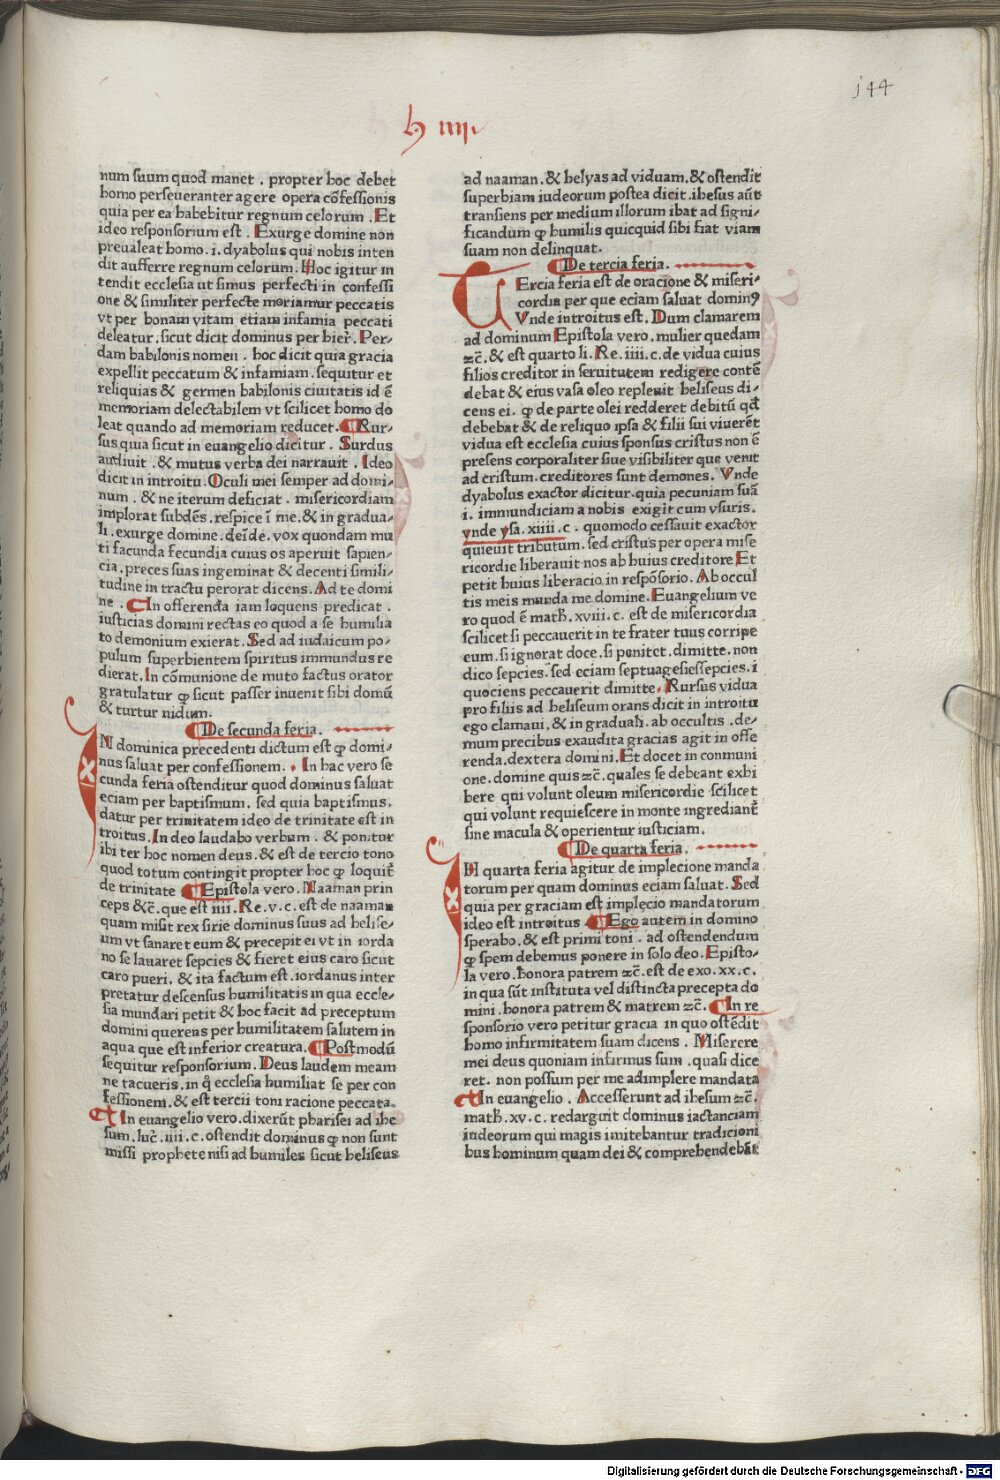 144
h iiij.
num suum quod manet . propter hoc debet
homo perseueranter agere opera cõfessionis
quia per ea habebitur regnum celorum . Et
ideo responsorium est . Exurge domine non
preualeat homo . i . dyabolus qui nobis inten
dit aufferre regnum celorum . Hoc igitur in
tendit ecclesia ut simus perfecti in confessi
one & similiter perfecte moriamur peccatis
vt per bonam vitam etiam infamia peccati
deleatur . sicut dicit dominus per hier̃. Per⸗
dam babilonis nomen . hoc dicit quia gracia
expellit peccatum & infamiam . sequitur et
reliquias & germen babilonis ciuitatis id ẽ
memoriam delectabilem vt scilicet homo do
leat quando ad memoriam reducet . ¶ Rur⸗
sus quia sicut in euangelio dicitur . Surdus
audiuit . & mutus verba dei narrauit . Ideo
dicit in introitu . Oculi mei semper ad domi⸗
num . & ne iterum deficiat . misericordiam
implorat subdẽs . respice ĩ me . & in gradua⸗
li . exurge domine . deĩde . vox quondam mu
ti facunda fecundia cuius os aperuit sapien⸗
cia . preces suas ingeminat & decenti simili⸗
tudine in tractu perorat dicens . Ad te domi
ne . ¶ In offerenda iam loquens predicat .
iusticias domini rectas eo quod a se humilia
to demonium exierat . Sed ad iudaicum po⸗
pulum superbientem spiritus immundus re
dierat . In cõmunione de muto factus orator
gratulatur ꝙ sicut passer inuenit sibi domũ
& turtur nidum .
¶ De secunda feria .
IN dominica precedenti dictum est ꝙ domi⸗
nus saluat per confessionem . In hac vero se
cunda feria ostenditur quod dominus saluat
eciam per baptismum . sed quia baptismus .
datur per trinitatem ideo de trinitate est in
troitus . In deo laudabo verbum . & ponitur
ibi ter hoc nomen deus . & est de tercio tono
quod totum contingit propter hoc ꝙ loquit̃
de trinitate ¶ Epistola vero . Naaman prin
ceps &c̃ . que est iiii . Re . v . c . est de naaman
quam misit rex sirie dominus suus ad helise⸗
um vt sanaret eum & precepit ei vt in iorda
no se lauaret sepcies & fieret eius caro sicut
caro pueri . & ita factum est . iordanus inter
pretatur descensus humilitatis in qua eccle⸗
sia mundari petit & hoc facit ad preceptum
domini querens per humilitatem salutem in
aqua que est inferior creatura . ¶ Postmodũ
sequitur responsorium . Deus laudem meam
ne tacueris . in q̃ ecclesia humiliat se per con
fessionem . & est tercii toni racione peccata .
¶ In euangelio vero . dixerũt pharisei ad ihe
sum . luc̃ . iiii . c . ostendit dominus ꝙ non sunt
missi prophete nisi ad humiles sicut heliseus
ad naaman . & helyas ad viduam . & ostendit
superbiam iudeorum postea dicit . ihesus aũt
transiens per medium illorum ibat ad signi⸗
ficandum ꝙ humilis quicquid sibi fiat viam
suam non delinquat .
¶ De tercia feria .
TErcia feria est de oracione & miseri⸗
cordia per que eciam saluat dominꝰ
Vnde introitus est . Dum clamarem
ad dominum Epistola vero . mulier quedam
⁊c̃ . & est quarto li . Re . iiii . c . de vidua cuius
filios creditor in seruitutem redigere contẽ
debat & eius vasa oleo repleuit heliseus di⸗
cens ei . ꝙ de parte olei redderet debitũ qđ
debebat & de reliquo ipsa & filii sui viuerẽt
vidua est ecclesia cuius sponsus cristus non ẽ
presens corporaliter siue visibiliter que venit
ad cristum . creditores sunt demones . Vnde
dyabolus exactor dicitur . quia pecuniam suã
i . immundiciam a nobis exigit cum vsuris .
vnde ysa . xiiii . c . quomodo cessauit exactor
quieuit tributum . sed cristus per opera mise
ricordie liberauit nos ab huius creditore Et
petit huius liberacio in respõsorio . Ab occul
tis meis munda me domine . Euangelium ve
ro quod ẽ math̃ . xviii . c . est de misericordia
scilicet si peccauerit in te frater tuus corripe
eum . si ignorat doce . si penitet . dimitte . non
dico sepcies . sed eciam septuagesiessepcies . i
quociens peccauerit dimitte . Rursus vidua
pro filiis ad heliseum orans dicit in introitu
ego clamaui . & in graduali . ab occultis . de⸗
mum precibus exaudita gracias agit in offe
renda . dextera domini . Et docet in conmuni
one . domine quis ⁊c̃ . quales se debeant exhi
bere qui volunt oleum misericordie scilicet
qui volunt requiescere in monte ingrediant̃
sine macula & operientur iusticiam .
¶ De quarta feria .
IN quarta feria agitur de implecione manda
torum per quam dominus eciam saluat . Sed
quia per graciam est implecio mandatorum
ideo est introitus ¶ Ego autem in domino
sperabo . & est primi toni . ad ostendendum
ꝙ spem debemus ponere in solo deo . Episto⸗
la vero . honora patrem ⁊c̃ . est de exo . xx . c .
in qua sũt instituta vel distincta precepta do
mini . honora patrem & matrem ⁊c̃ . ¶ In re
sponsorio vero petitur gracia in quo ostẽdit
homo infirmitatem suam dicens . Miserere
mei deus quoniam infirmus sum . quasi dice
ret . non possum per me adimplere mandata
¶ In euangelio . Accesserunt ad ihesum ⁊c̃ .
math̃ . xv . c . redarguit dominus iactanciam
iudeorum qui magis imitebantur tradicioni
bus hominum quam dei & comprehendebãt
Digitalisierung gefördert durch die Deutsche Forschungsgemeinschaft - DFG